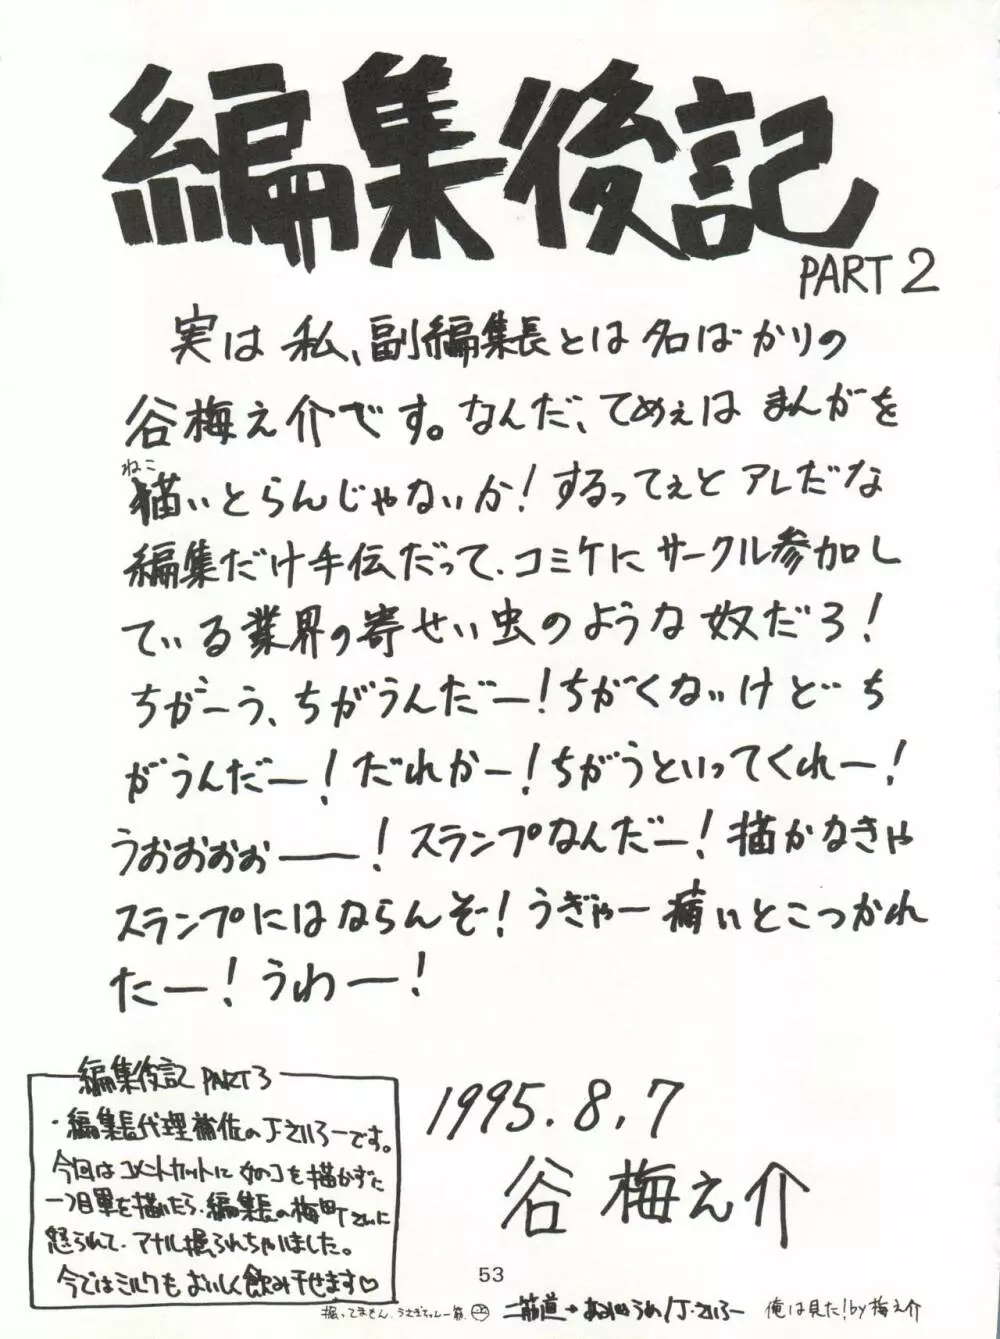 編集後記
PART2
実は私、副編集長とは名ばかりの
谷梅之介です。なんだ、てめぇはまんがを
ねこ
描いとらんじゃないか!するってぇとアレだな
編集だけ手伝だって、コミケにサークル参加し
ている業界の寄せい虫のような奴だろ!
ちがーう、ちがうんだー!ちがくないけどち
がうんだー!だれかー!ちがうといってくれー!
うおおおおー!スランプなんだー!描かなきゃ
スランプにはならんぞ!うぎゃー痛いとこつかれ
たー!うわー!
編集後記 PART3
・編集長代理補佐のJ・さいろーです。
今回はコメントカットに女のコを描かずに
一つ目軍を描いたら、編集長の梅田Tさんに
怒られて、アナル掘られちゃいました。
今ではミルクもおいしく飲み干せます♡
1995.8.7
谷梅之介
53
掘ってません。うさぎちゃん一筋。
二筋道→
J・さいろー
俺は見た!by梅之介